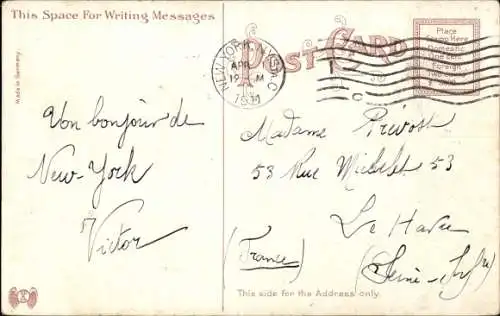 This Space For Writing Messages
Post Card
Place
Stamp Here
Domestic
One Cent
Foreign
Two Cents
NEW YORK, N.Y. STA. C
APR
19 M
Made in Germany.
Un bonjour de
New-York
Victor
Madame Prévost
53 Rue Michelet 53
Le Havre
(France)
(Seine-Infre)
This side for the Address only.